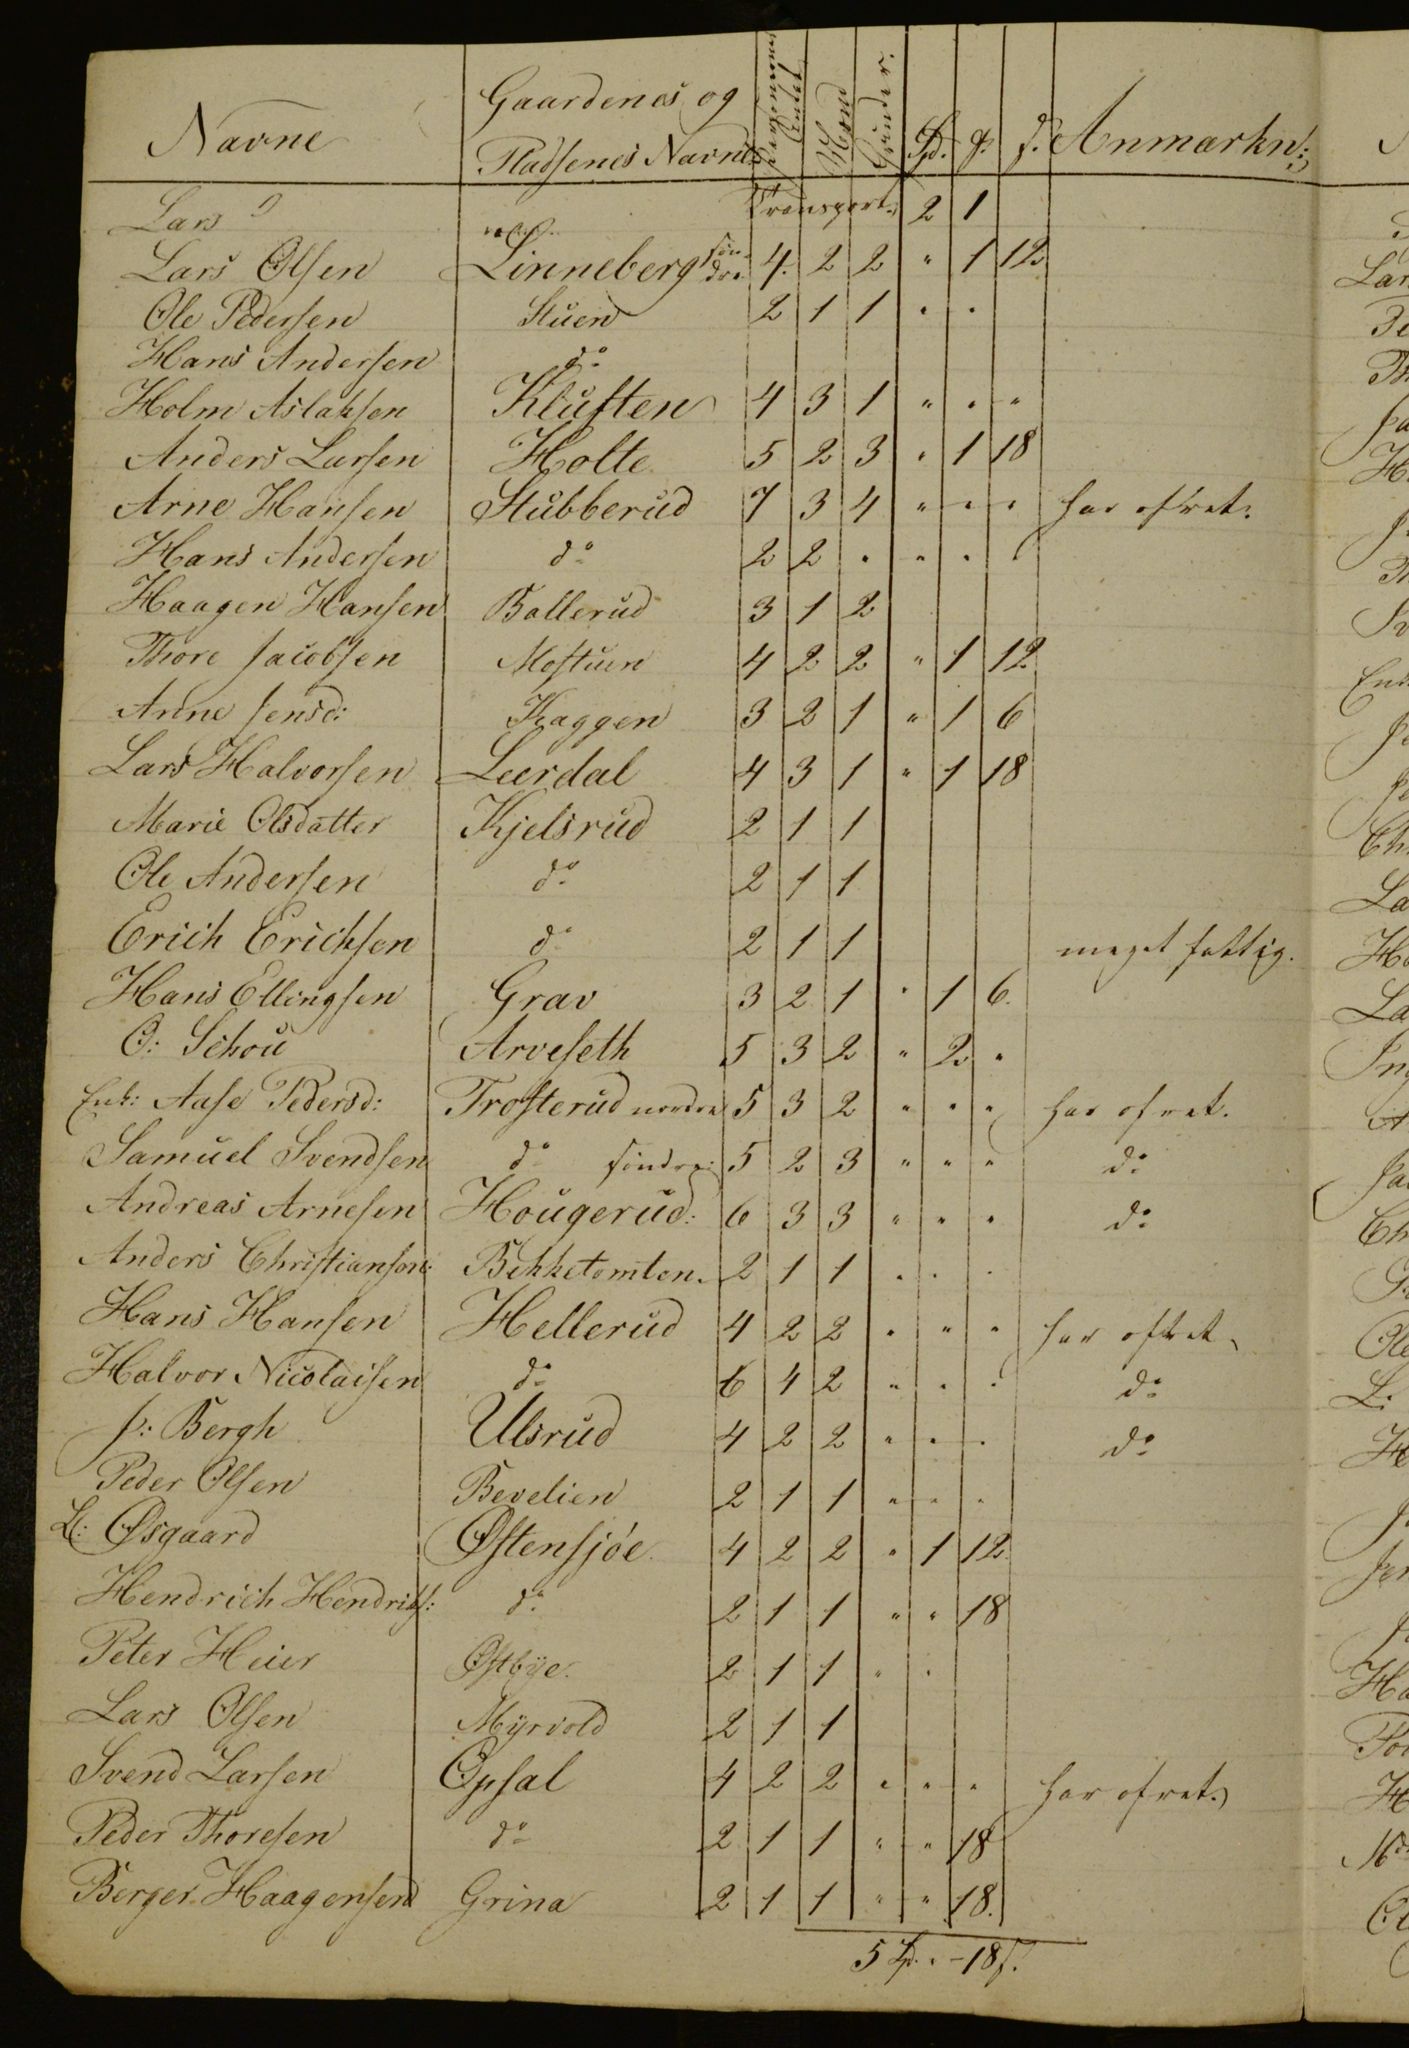 Navne Gaardenes og Pladsenes Navne Personernes Antal Mænd Qvinder. Spd. # s. Anmærkn:
Lars Transport. 2 1
Lars Olsen Linneberg søndre 4. 2 2 " 1 12
Ole Pedersen Stuen 2 1 1 " "
Hans Andersen do
Holm Aslaksen Kluften 4 3 1 " " "
Anders Larsen Holte 5 2 3 " 1 18
Arne Hansen Stubberud 7 3 4 " " " har ofret.
Hans Andersen do 2 2 " " "
Haagen Hansen Bollerud 3 1 2
Thore Jacobsen Mostuen 4 2 2 " 1 12
Anne Jensd: Kaggen 3 2 1 " 1 6
Lars Halvorsen Leerdal 4 3 1 " 1 18
Marie Olsdatter Kjelsrud 2 1 1
Ole Andersen do 2 1 1
Erich Erichsen do 2 1 1 meget fattig.
Hans Ellingsen Grav 3 2 1 " 1 6.
O: Schou Arveseth 5 3 2 " 2 "
Enk: Aase Pedersd: Trosterud nordre 5 3 2 " " " har ofret.
Samuel Svendsen do søndre: 5 2 3 " " " do
Andreas Arnesen Hougerud: 6 3 3 " " " do
Anders Christiansen: Bekketomten. 2 1 1 " " "
Hans Hansen Hellerud 4 2 2 " " " har ofret.
Halvor Nicolaisen do 6 4 2 " " " do
P: Bergh Ulsrud 4 2 2 " " " do
Peder Olsen Bevelien 2 1 1 " " "
L: Øsgaard Østensjøe 4 2 2 " 1 12.
Hendrich Hendrichs: do 2 1 1 " " 18
Peter Heier Østbye. 2 1 1 " "
Lars Olsen Myrvold 2 1 1
Svend Larsen Opsal 4 2 2 " " " har ofret.
Peder Thoresen do 2 1 1 " " 18
Berger Haagensen Grina 2 1 1 " " 18.
5 Spd. " - 18 s.